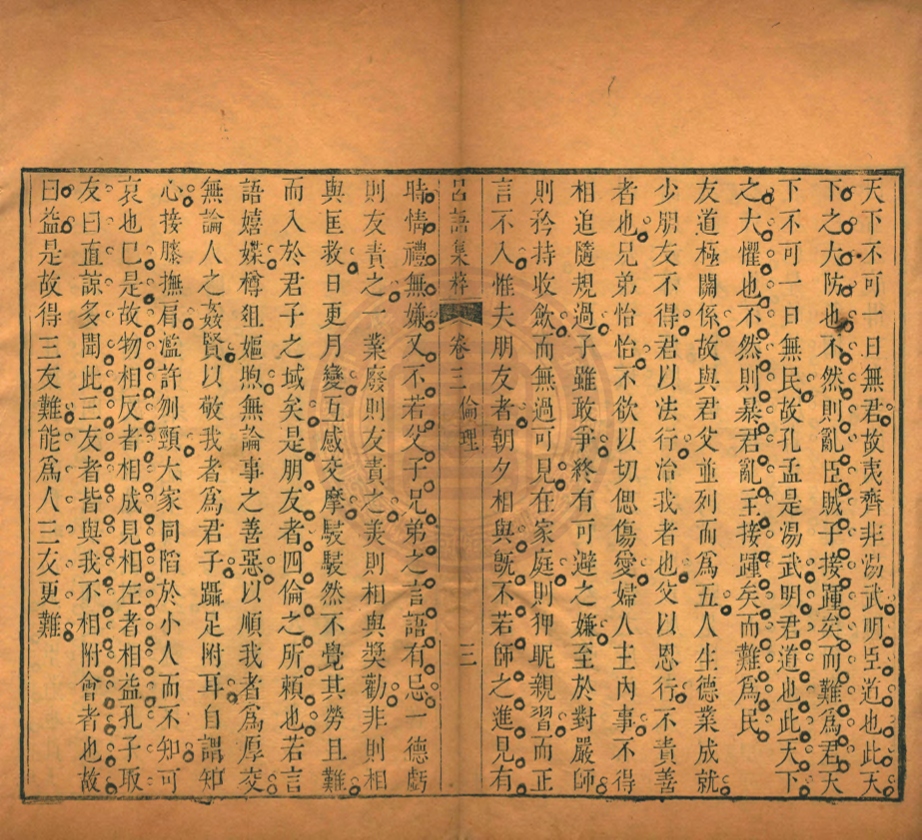 天下不可一日無君故夷齊非湯武明臣道也此天
下之大防也不然則亂臣賊子接踵矣而難爲君天
下不可一日無民故孔孟是湯武明君道也此天下
之大懼也不然則暴君亂主接踵矣而難爲民
友道極關係故與君父並列而爲五人生德業成就
少朋友不得君以法行治我者也父以恩行不責善
者也兄弟怡怡不欲以切偲傷愛婦人主內事不得
相追隨規過子雖敢爭終有可避之嫌至於對嚴師
則矜持收斂而無過可見在家庭則狎昵親習而正
言不入惟夫朋友者朝夕相與旣不若師之進見有
呂語集粹 卷三 倫理 三
時情禮無嫌又不若父子兄弟之言語有忌一德虧
則友責之一業廢則友責之美則相與奬勸非則相
與匡救日更月變互感交摩駸駸然不覺其勞且難
而入於君子之域矣是朋友者四倫之所賴也若言
語嬉媟樽俎嫗煦無論事之善惡以順我者爲厚交
無論人之姦賢以敬我者爲君子躡足附耳自謂知
心接膝撫肩濫許刎頸大家同陷於小人而不知可
哀也已是故物相反者相成見相左者相益孔子取
友曰直諒多聞此三友者皆與我不相附會者也故
曰益是故得三友難能爲人三友更難